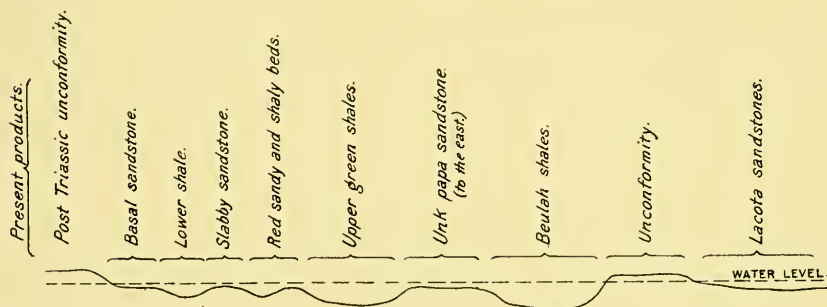 Present products.
Post Triassic unconformity.
Basal sandstone.
Lower shale.
Slabby sandstone.
Red sandy and shaly beds.
Upper green shales.
Unk papa sandstone
(to the east.)
Beulah shales.
Unconformity.
Lacota sandstones.
WATER LEVEL.